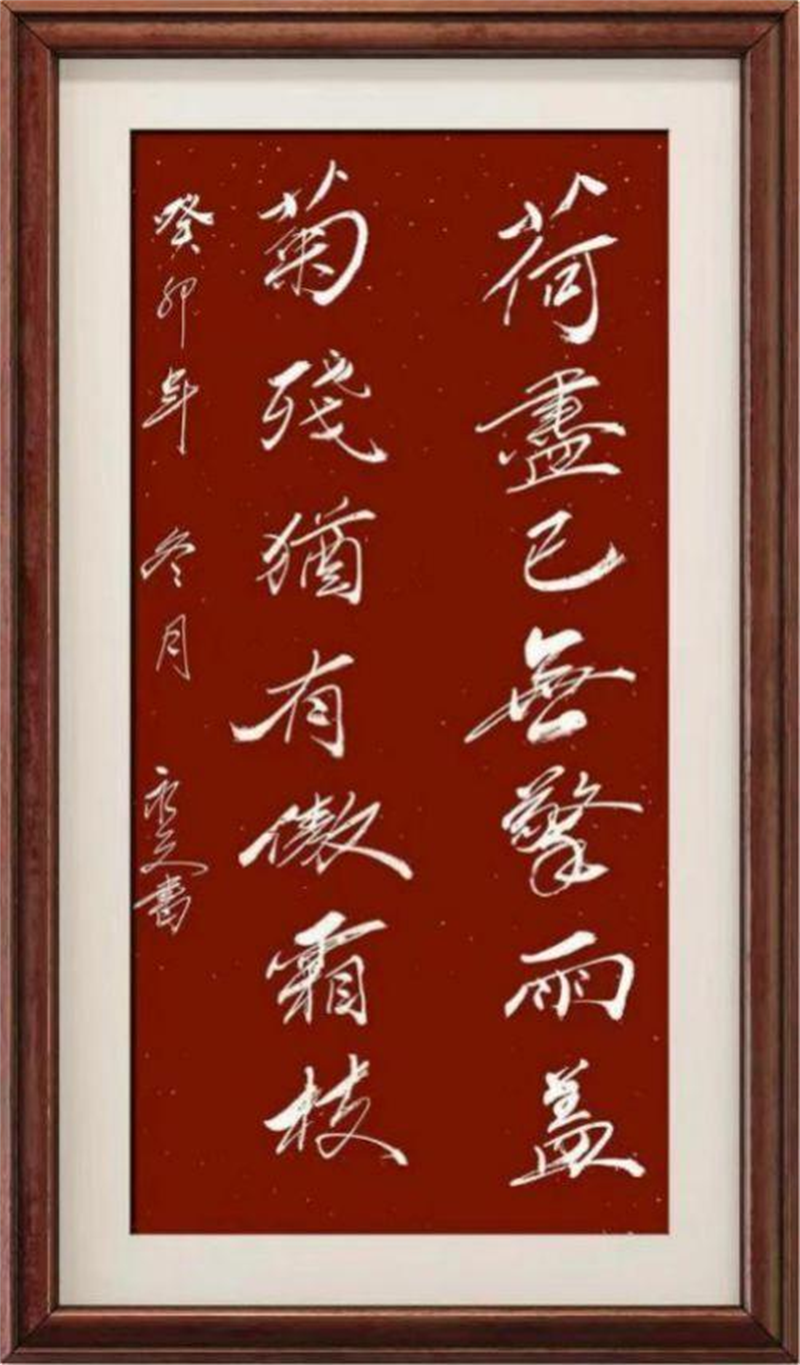 荷盡已無擎雨蓋
菊殘猶有傲霜枝
癸卯年 冬月 永文書